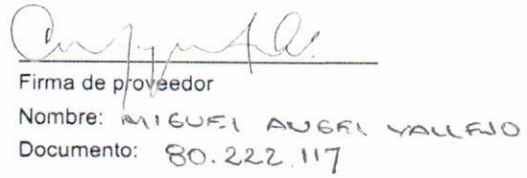 Firma de proveedor
Nombre: MIGUEL ANGEL VALLEJO
Documento: 80.222.117